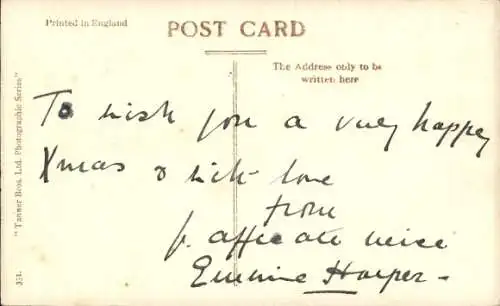 Printed in England
POST CARD
The Address only to be
written here
To wish you a very happy
Xmas & with love
from
affecate neice
Harper
"Tanner Bros. Ltd. Photographic Series"
351.